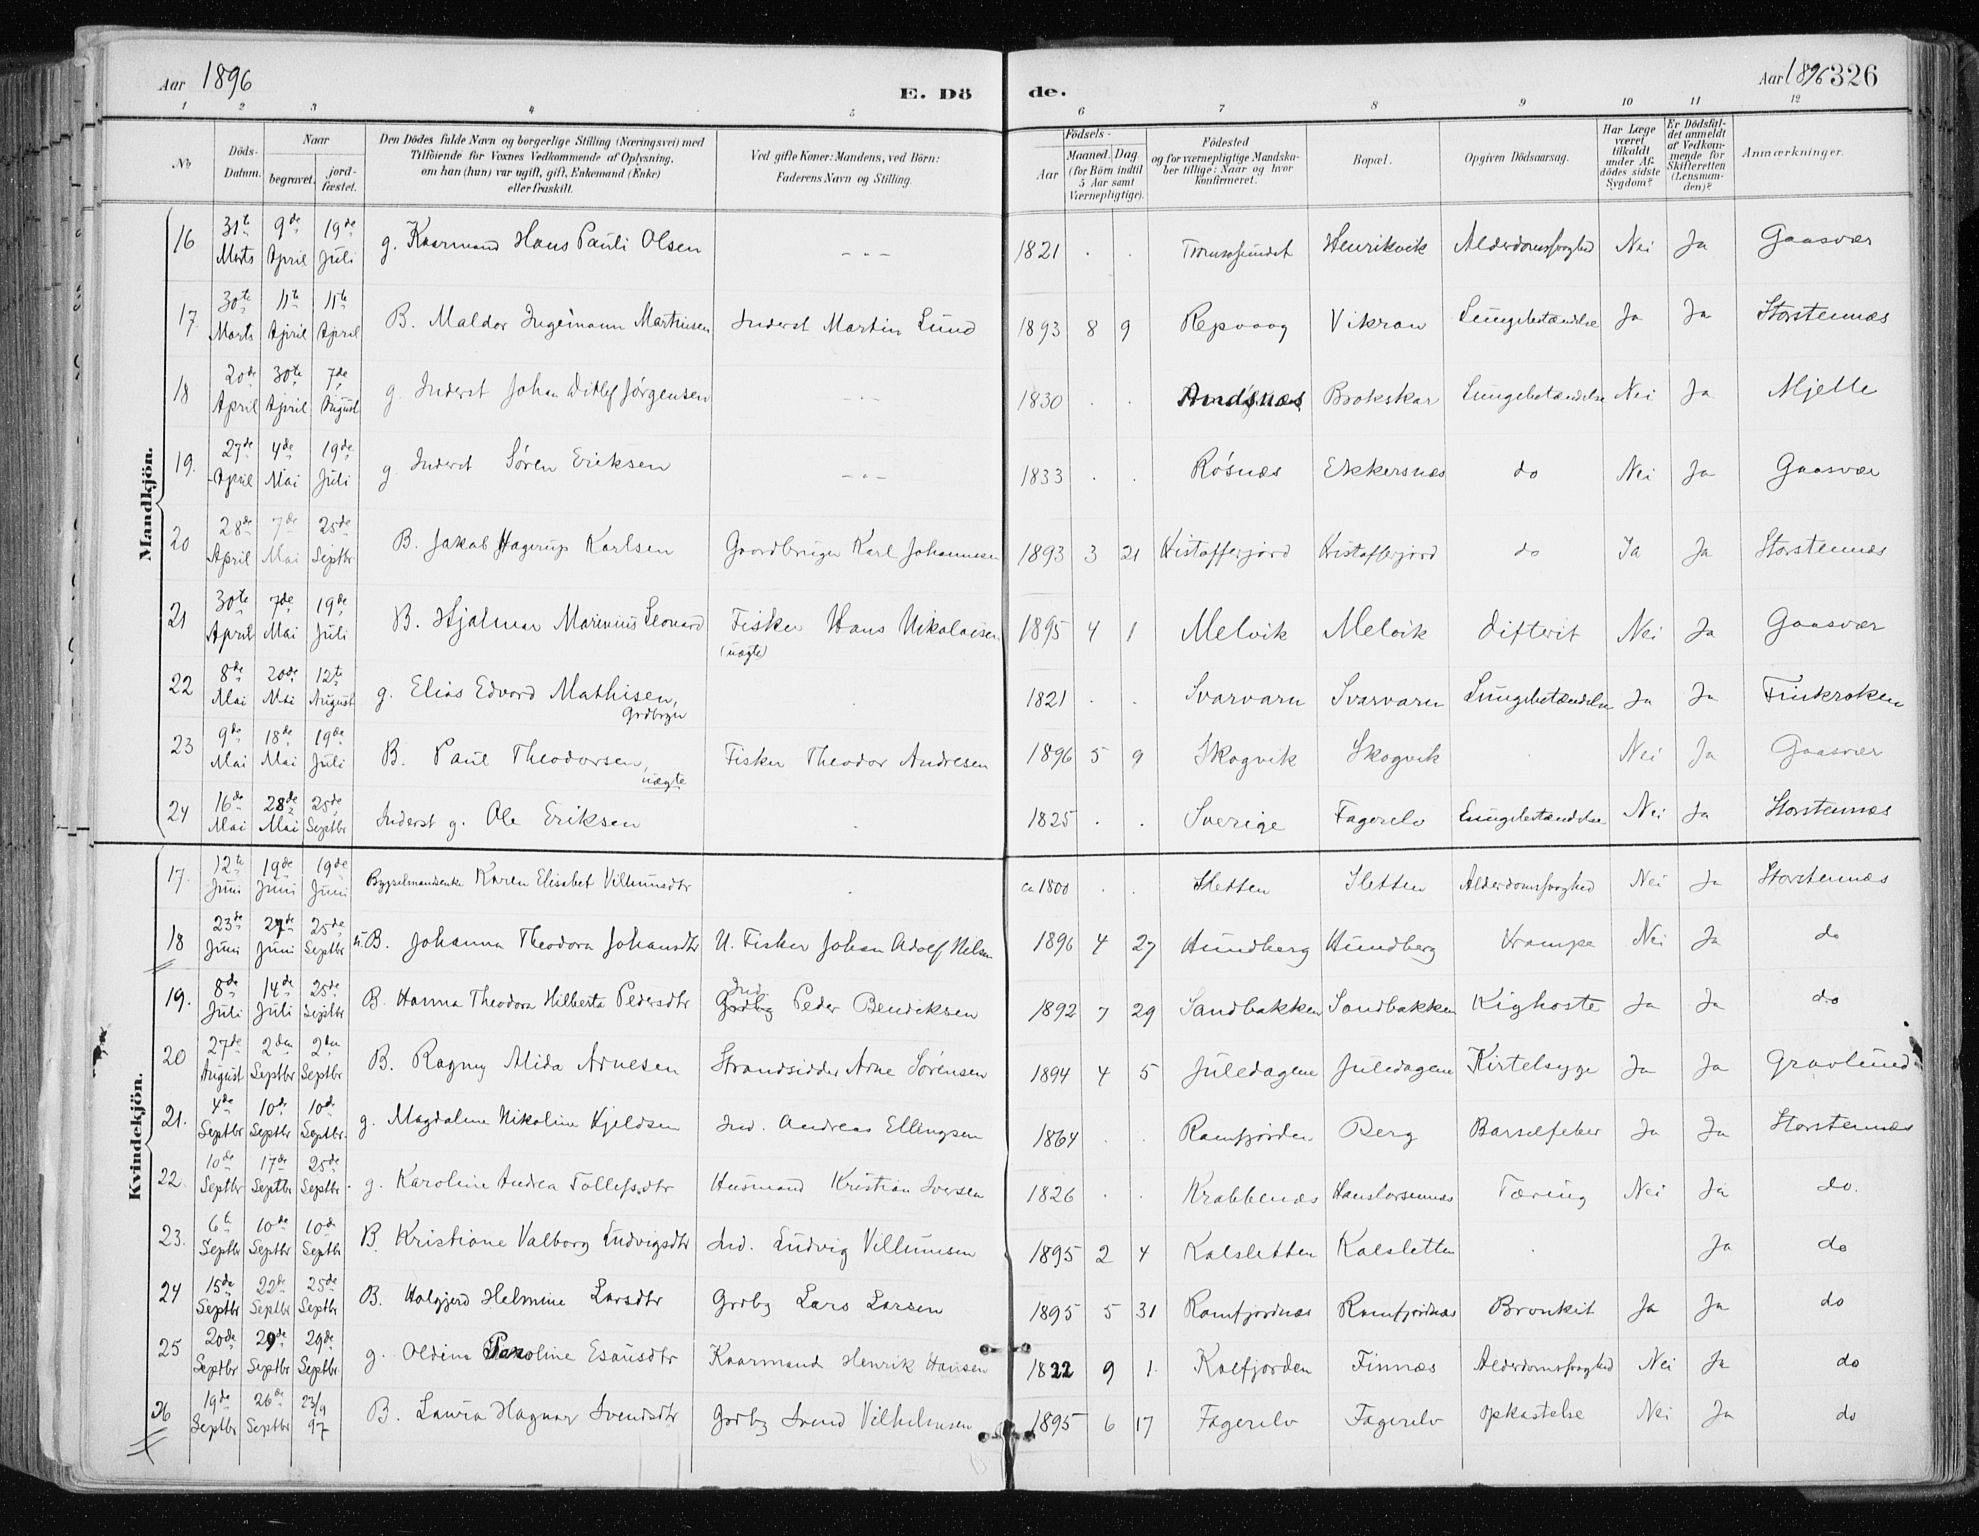 Aar 1896
E. Dö de.
Aar 1896 326
1 2 3 4 5 6 7 8 9 10 11 12
No
Döds-Datum.
Naar
begravet.
jord-fæstet.
Den Dödes fulde Navn og borgerlige Stilling (Næringsvei) med
Tilföiende for Voxnes Vedkommende af Oplysning,
om han (hun) var ugift, gift, Enkemand (Enke)
eller fraskilt.
Ved gifte Koner: Mandens, ved Börn:
Faderens Navn og Stilling.
Födsels-
Aar
Maaned. Dag.
(for Börn indtil
5 Aar samt
Værnepligtige).
Födested
og for værnepligtige Mandska-
ber tillige: Naar og hvor
konfirmeret.
Bopæl.
Opgiven Dödsaarsag.
Har Læge
været
tilkaldt
under Af-
dödes sidste
Sygdom?
Er Dödsfal-
det anmeldt
af Vedkom-
mende for
Skifteretten
(Lensman-
den)?
Anmærkninger.
Mandkjön.
16 31te Marts 9de April 19de Juli g. Kaarmand Hans Pauli Olsen - - - 1821 . . Tromsøsundet Henrikvik Alderdomssvaghed Nei Ja Gaasvær
17. 30te Marts 11te April 11te April B. Maldor Ingemann Martinsen Inderst Martin Lund 1893 8 9 Repvaag Vikran Lungebetændelse Ja Ja Storstennæs
18 20de April 30te April 7de August g. Inderst Johan Ditlef Jørgensen - - - 1830 . . Andsnæs Brokskar Lungebetændelse Nei Ja Mjelle
19. 27de April 4de Mai 19de Juli g. Inderst Søren Eriksen - - - 1833 . . Røsnæs Ekkersnæs do Nei Ja Gaasvær
20 28de April 7de Mai 25de Septbr B. Jakob Hagerup Karlsen Gaardbruger Karl Johannesen 1893 3 21 Kistafferjord Kistafferjord do Ja Ja Storstennæs
21 30te April 7de Mai 19de Juli B. Hjalmar Marinius Leonard Fisker Hans Nikolaisen (uægte) 1895 4 1 Melvik Melvik difterit Nei Ja Gaasvær
22 8de Mai 20de Mai 12te August g. Elias Edvard Mathisen, Grdbrger . 1821 . . Svarvarn Svarvarn Lungebetændelse Ja Ja Finkroken
23 9de Mai 18de Mai 19de Juli B. Paul Theodorsen, uægte Fisker Theodor Andresen 1896 5 9 Skogvik Skogvik . Nei Ja Gaasvær
24 16de Mai 28de Mai 25de Septbr Inderst g. Ole Eriksen . 1825 . . Sverige Fagerelv Lungebetændelse Nei Ja Storstennæs
Kvindekjön.
17. 12te Juni 19de Juni 19de Juni Bygselmandsenke Karen Elisabet Villumsdtr . ca 1800 . . Sletten Sletten Alderdomssvaghed Nei Ja Storstennæs
18 23de Juni 27de Juni 25de Septbr u. B. Johanna Theodora Johansdtr U. Fisker Johan Adolf Nilsen 1896 4 27 Hundberg Hundberg Krampe Nei Ja do
19. 8de Juli 14de Juli 25de Septbr B. Hanna Theodora Hilberta Pedersdtr Ind. Grdbg Peder Bendiksen 1892 7 29 Sandbakken Sandbakken Kighoste Ja Ja do
20 27de August 2den Septbr 2den Septbr B. Ragny Alida Arnesen Strandsidder Arne Sörensen 1894 4 5 Juledagene Juledagene Kirtelsyge Ja Ja Gravlund
21. 4de Septbr 10de Septbr 10de Septbr. g. Magdalene Nikoline Kjeldsen Ind. Andreas Ellingsen 1864 . . Ramfjorden Berg Barselfeber Ja Ja Storstennæs
22. 10de Septbr 17de Septbr 25de Septbr. g. Karoline Andrea Tollefsdtr Husmand Kristian Iversen 1826 . . Krabbenæs Hanslarsennæs Tæring Nei Ja do.
23. 6te Septbr 10de Septbr 10de Septbr B. Kristiane Valborg Ludvigsdtr Ind. Ludvig Villumsen 1895 2 4 Kalsletten Kalsletten . Ja do
24 15de Septbr 22de Septbr 25de Septbr B. Halgjerd Helmine Larsdtr Grdbg Lars Larsen 1895 5 31 Ramfjordnæs Ramfjordnæs Bronkit Ja Ja do
25 20de Septbr 29de Septbr 29de Septbr g. Oldina Paroline Esausdtr Kaarmand Henrik Hansen 1822 9 1. Kalfjorden Finnæs Alderdomssvaghed Nei Ja do
26 19de Septbr 26de Septbr 23/9 97 B. Laura Hagnar Svendsdtr Grdbg Svend Vilhelmsen 1895 6 17 Fagerelv Fagerelv Opkastelse Nei Ja do